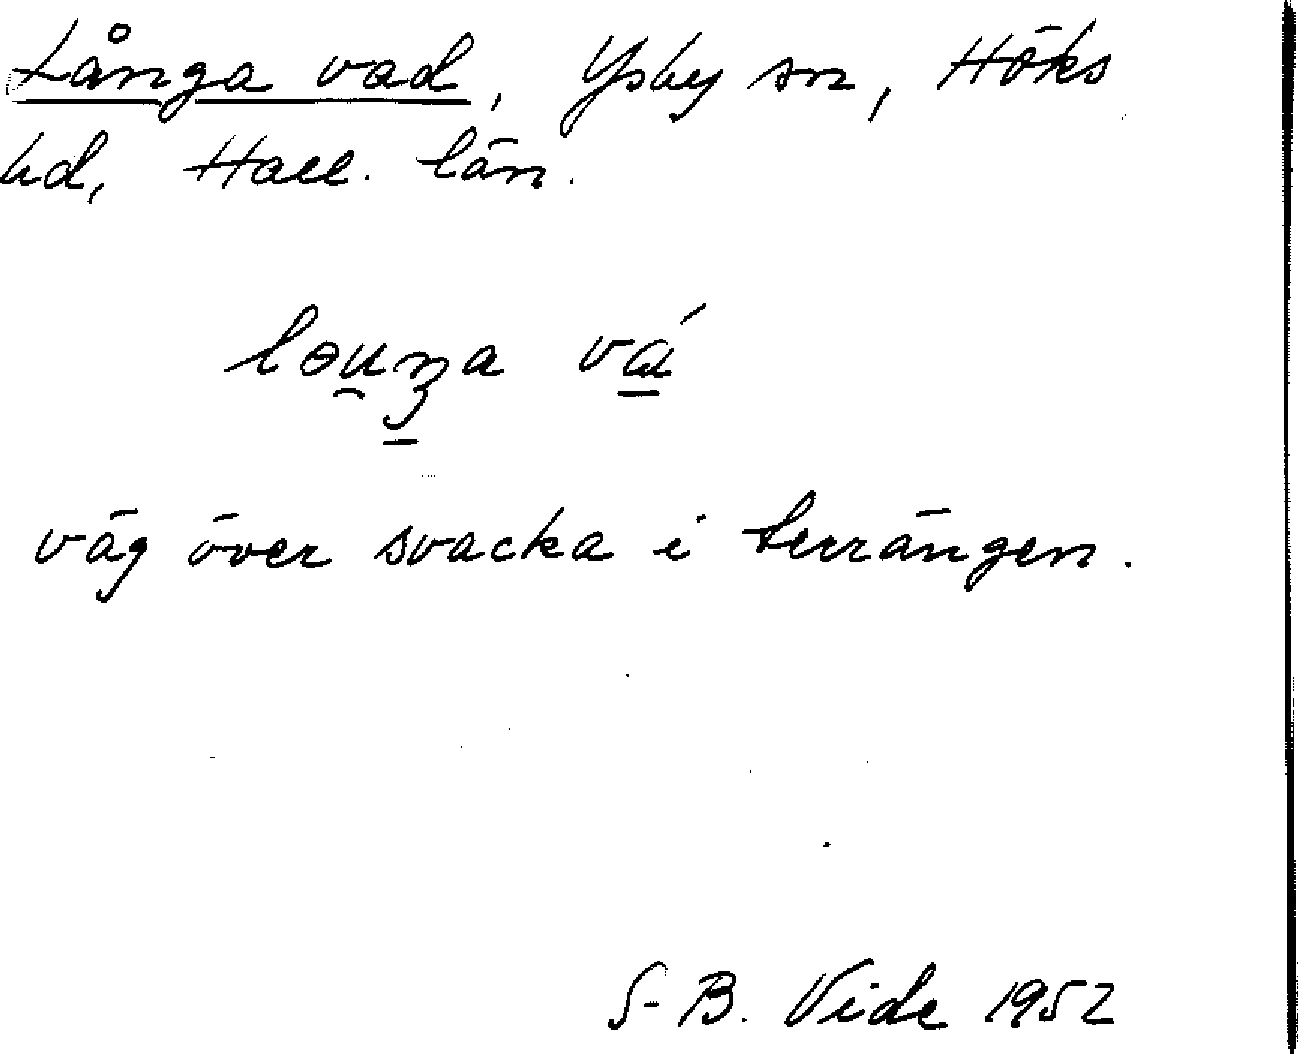 Långa vad, Ysby sn, Höks
hd, Hall. län.
ləu̯ŋa vá
väg över svacka i terrängen.
S-B. Vide 1952